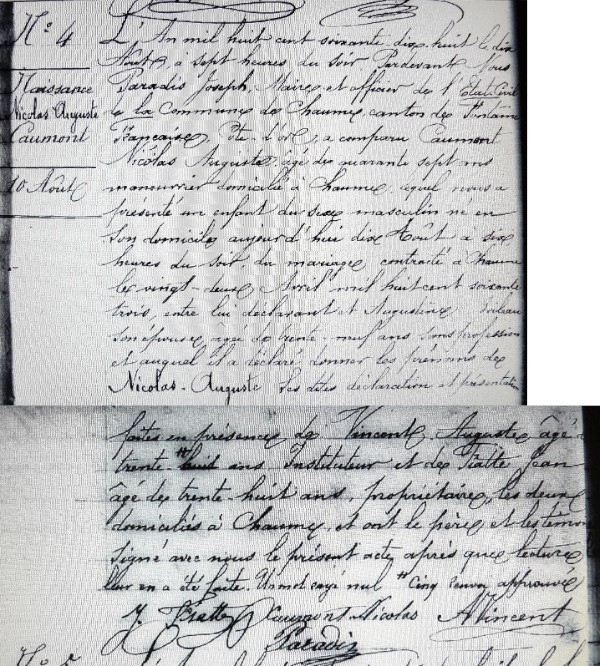 N° 4
Naissance
Nicolas Auguste
Caumont
10 Août
L'An mil huit cent soixante-dix huit le dix
Août, à sept heures du soir Pardevant Nous
Paradis Joseph, Maire et officier de l'État-Civil
de la Commune de Chaume canton de Fontaine
Française, Côte-d'or, a comparu Caumont
Nicolas Auguste, âgé de quarante sept ans
manouvrier domicilié à Chaume, lequel nous a
présenté un enfant du sexe masculin né en
son domicile aujourd'hui dix Août à six
heures du soir, du mariage contracté à Chaume
le vingt-deux Avril mil huit cent soixante
trois, entre lui déclarant et Augustine
son épouse, âgée de trente-neuf ans sans profession
et auquel il a déclaré donner les prénoms de
Nicolas-Auguste Les dites déclaration et présentation
faites en présence de Vincent Auguste âgé de
trente-huit ans Instituteur et de Jean
âgé de trente-huit ans, propriétaire, les deux
domiciliés à Chaume, et ont le père et les témoins
signé avec nous le présent acte après que lecture
leur en a été faite. Un mot rayé nul cinq approuvé
Caumont Nicolas AVincent
Paradis